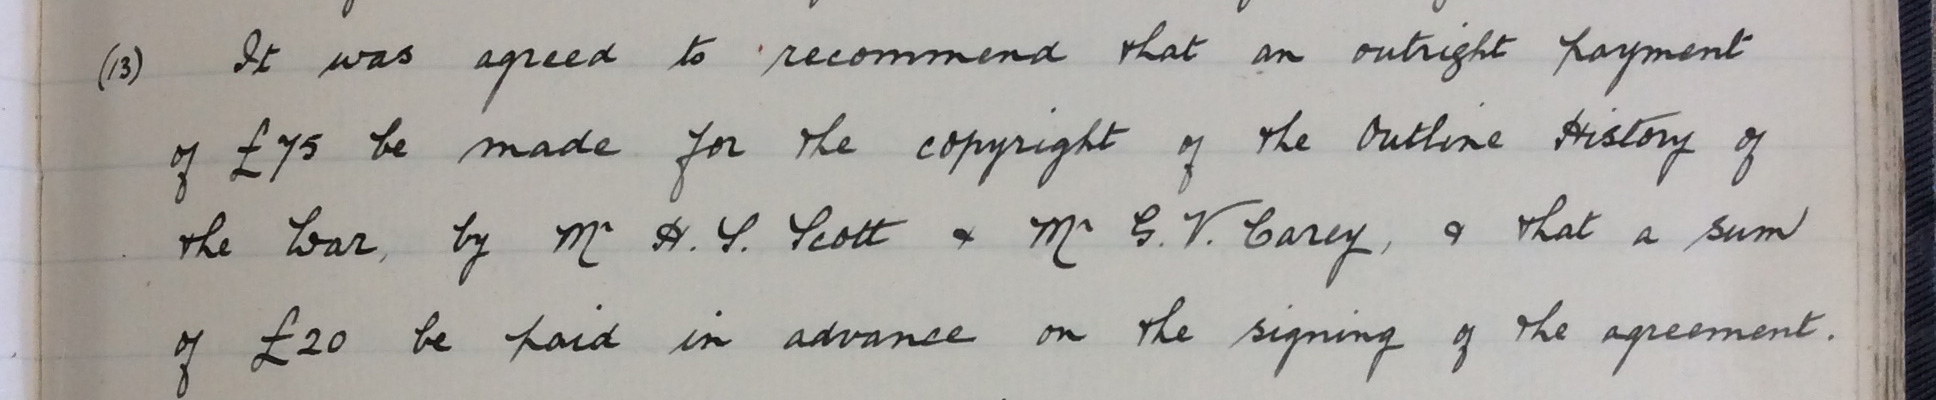 (13) It was agreed to recommend that an outright payment
of £75 be made for the copyright of the Outline History of
the War, by Mr H. S. Scott & Mr G. V. Carey, & that a sum
of £20 be paid in advance on the signing of the agreement.